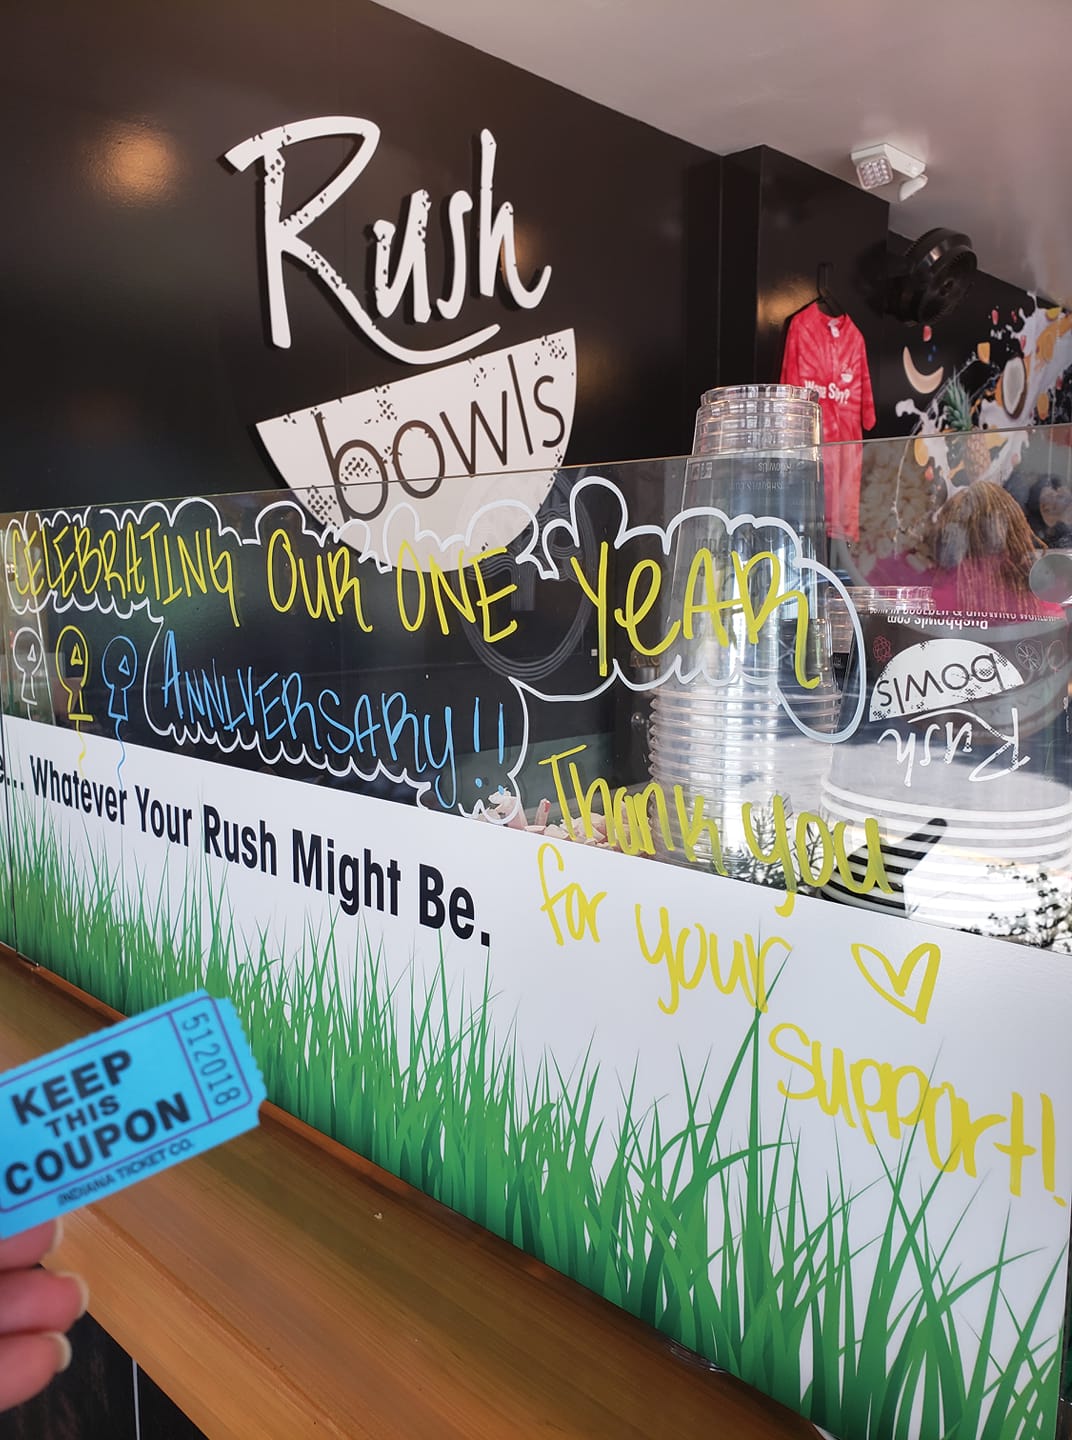 Rush
bowls
Wow Sir?
CELEBRATING OUR ONE YEAR
ANNIVERSARY!!
Thank you
for your
support!
Whatever Your Rush Might Be.
Rushbowls.com
bowls
Rush
KEEP
THIS
COUPON
INDIANA TICKET CO.
512018